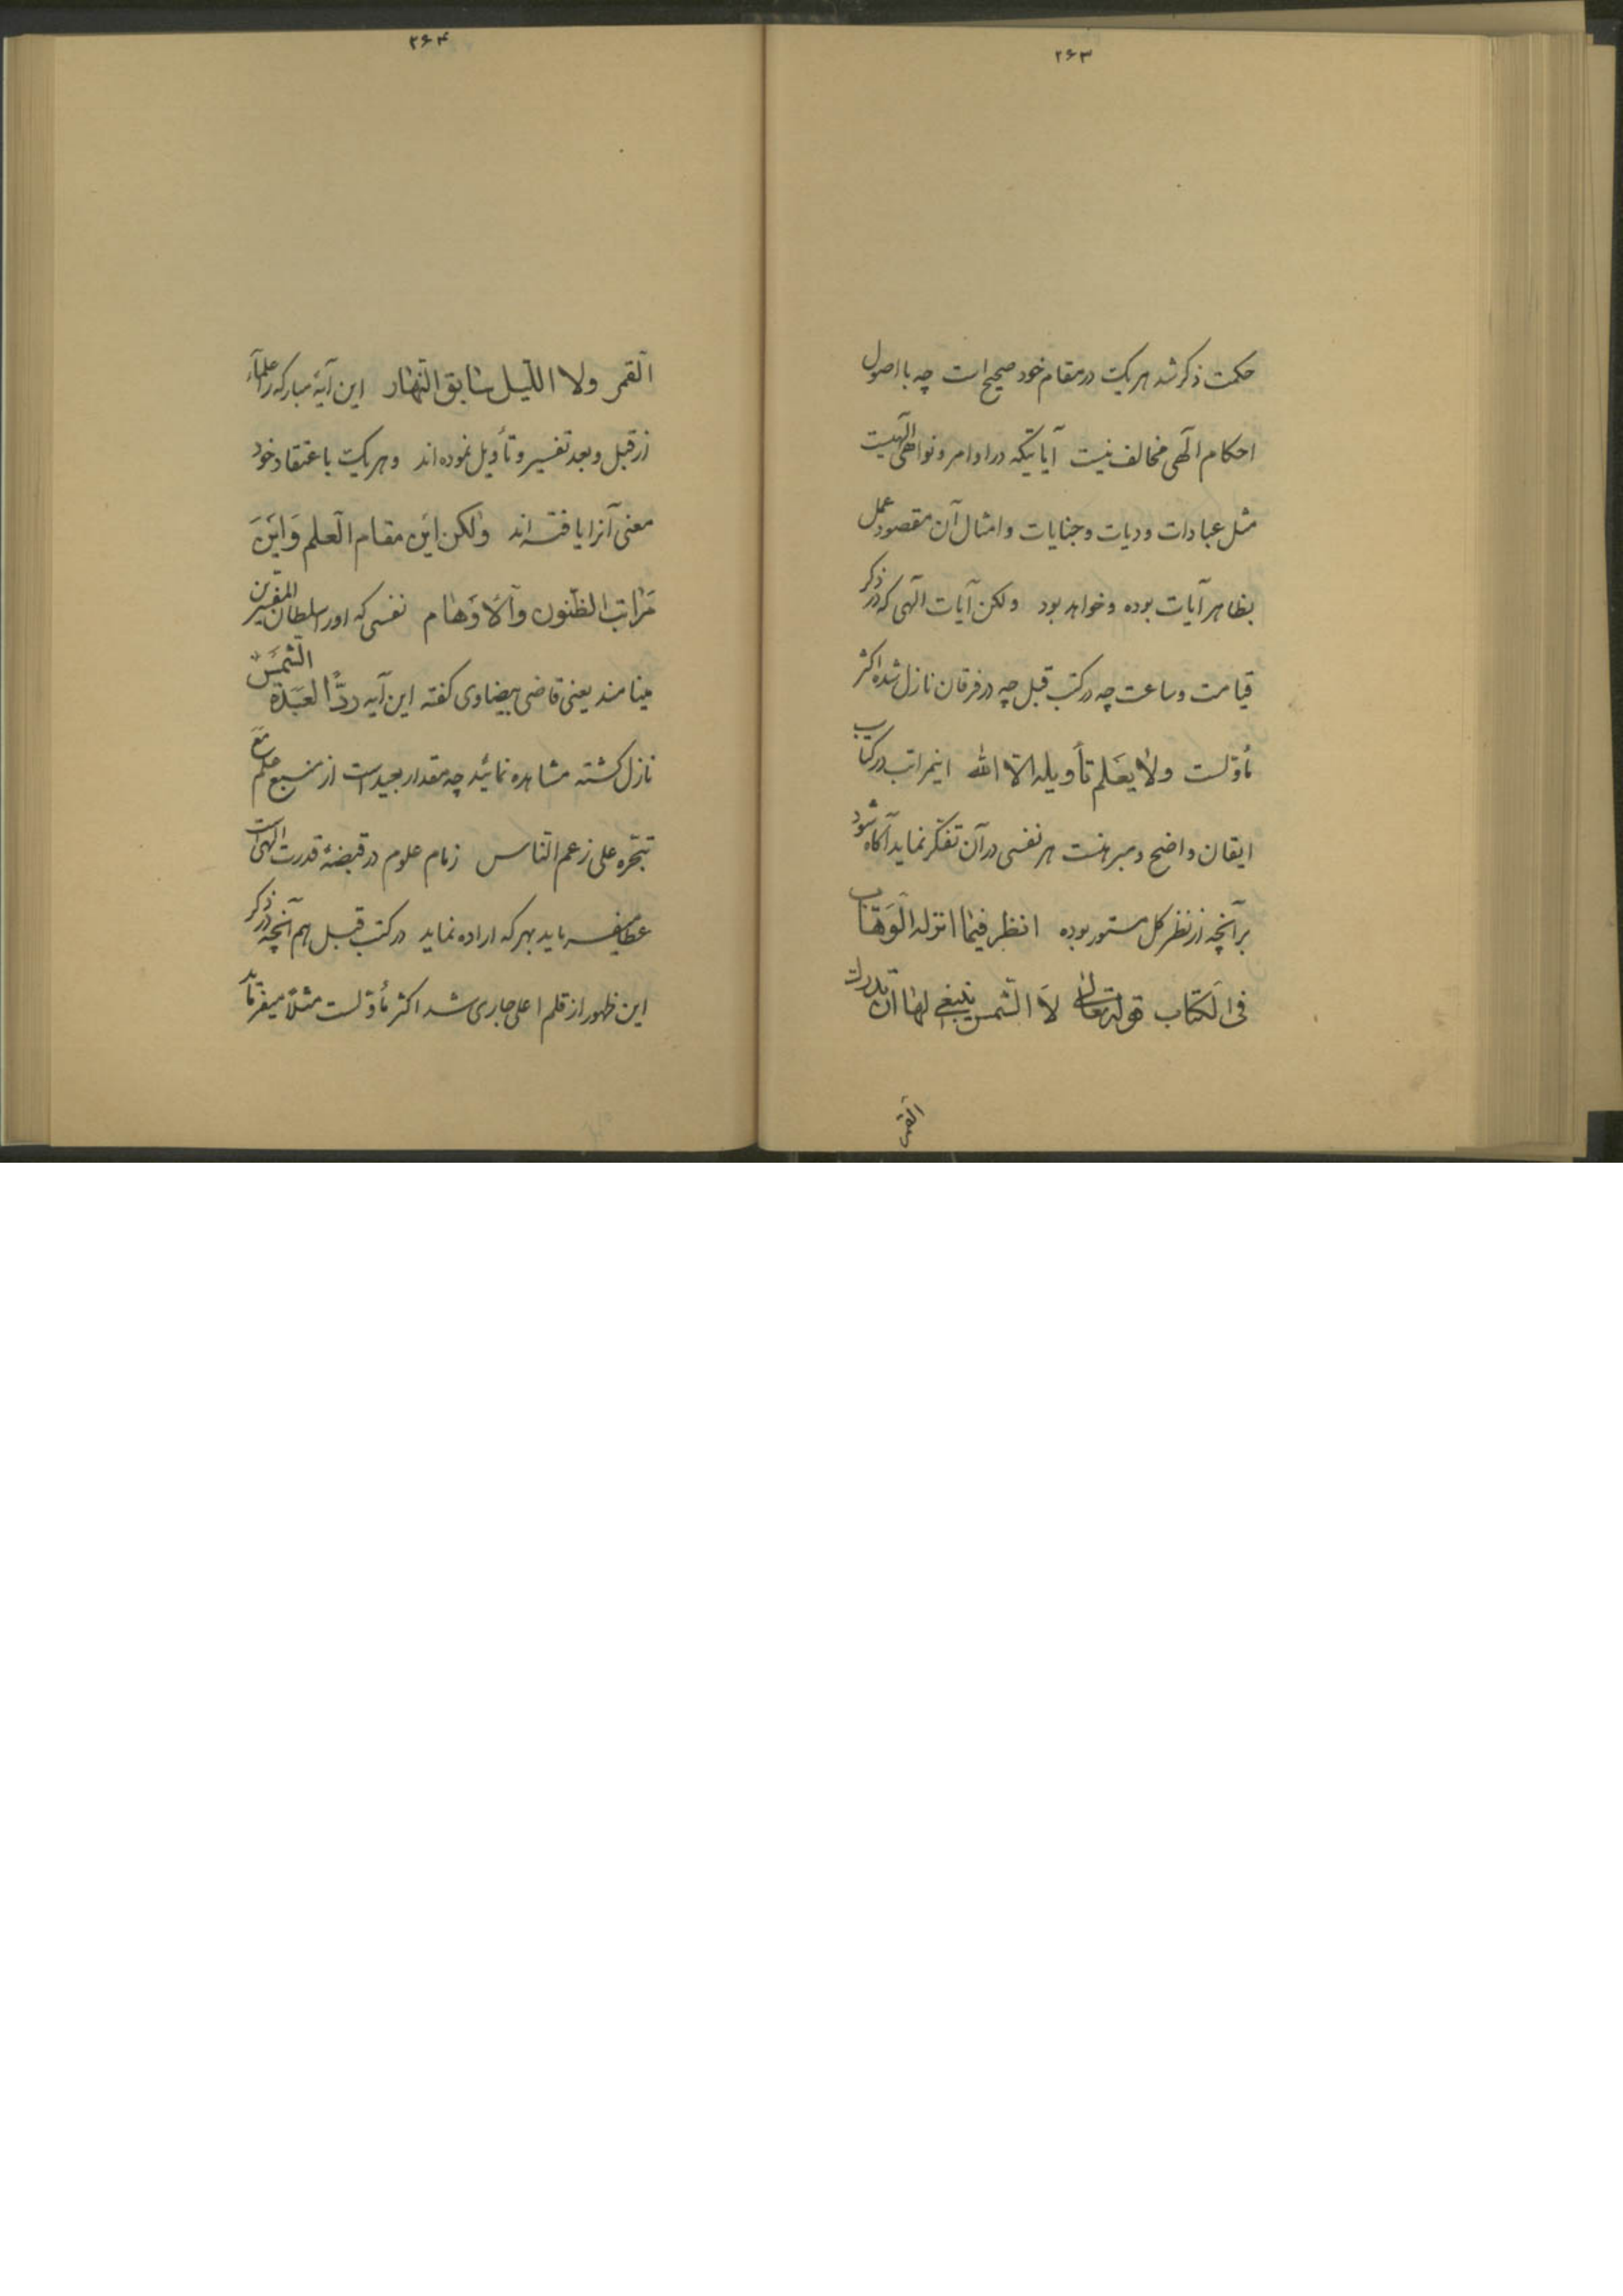 ۲۶۳
حکمت ذکر شد هریک در مقام خود صحیح است چه با اصول
احکام الهی مخالف نیست آیاتیکه در اوامر و نواهی الهیست
مثل عبادات و دیات و جنایات و امثال آن مقصود عمل
بظاهر آیات بوده و خواهد بود ولکن آیات الهی که در ذکر
قیامت و ساعت چه در کتب قبل چه در فرقان نازل شده اکثر
مأوّلست ولا یعلم تأویله الّا الله اینمراتب در کتاب
ایقان واضح و مبرهنست هر نفسی در آن تفکّر نماید آگاه شود
بر آنچه از نظر کل مستور بوده انظر فیما انزله الوهّاب
فی الکتاب قوله تعالی لا الشّمس ینبغی لها ان تدرک
القمر
۲۶۴
القمر ولا اللّیل سابق النّهار این آیهٔ مبارکه را علمآء
از قبل و بعد تفسیر و تأویل نموده‌اند و هریک باعتقاد خود
معنی آنرا یافته‌اند ولکن این مقام العلم و این
مراتب الظّنون والاوهام نفسی که او را سلطان المفسّرین
مینامند یعنی قاضی بیضاوی گفته این آیه ردّاً لعبدة الشّمس
نازل گشته مشاهده نمائید چه مقدار بعید است از منبع علم مع
تبحّره علی زعم النّاس زمام علوم در قبضهٔ قدرت الهی است
عطا میفرماید بهر که اراده نماید در کتب قبل هم آنچه در ذکر
این ظهور از قلم اعلی جاری شد اکثر مأوّلست مثلاً میفرماید